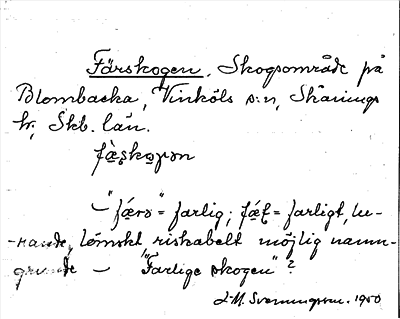 Färskogen. Skogsområde på
Blombacka, Vinköls s:n, Skånings
hr, Skb. län.
fæ̀șkoɡən
– "færș" = farlig; fæț = farligt, lu-
-rande, lömskt, riskabelt möjlig namn-
grunde – "Farlige skogen"?
L.M. Svenungsson. 1950